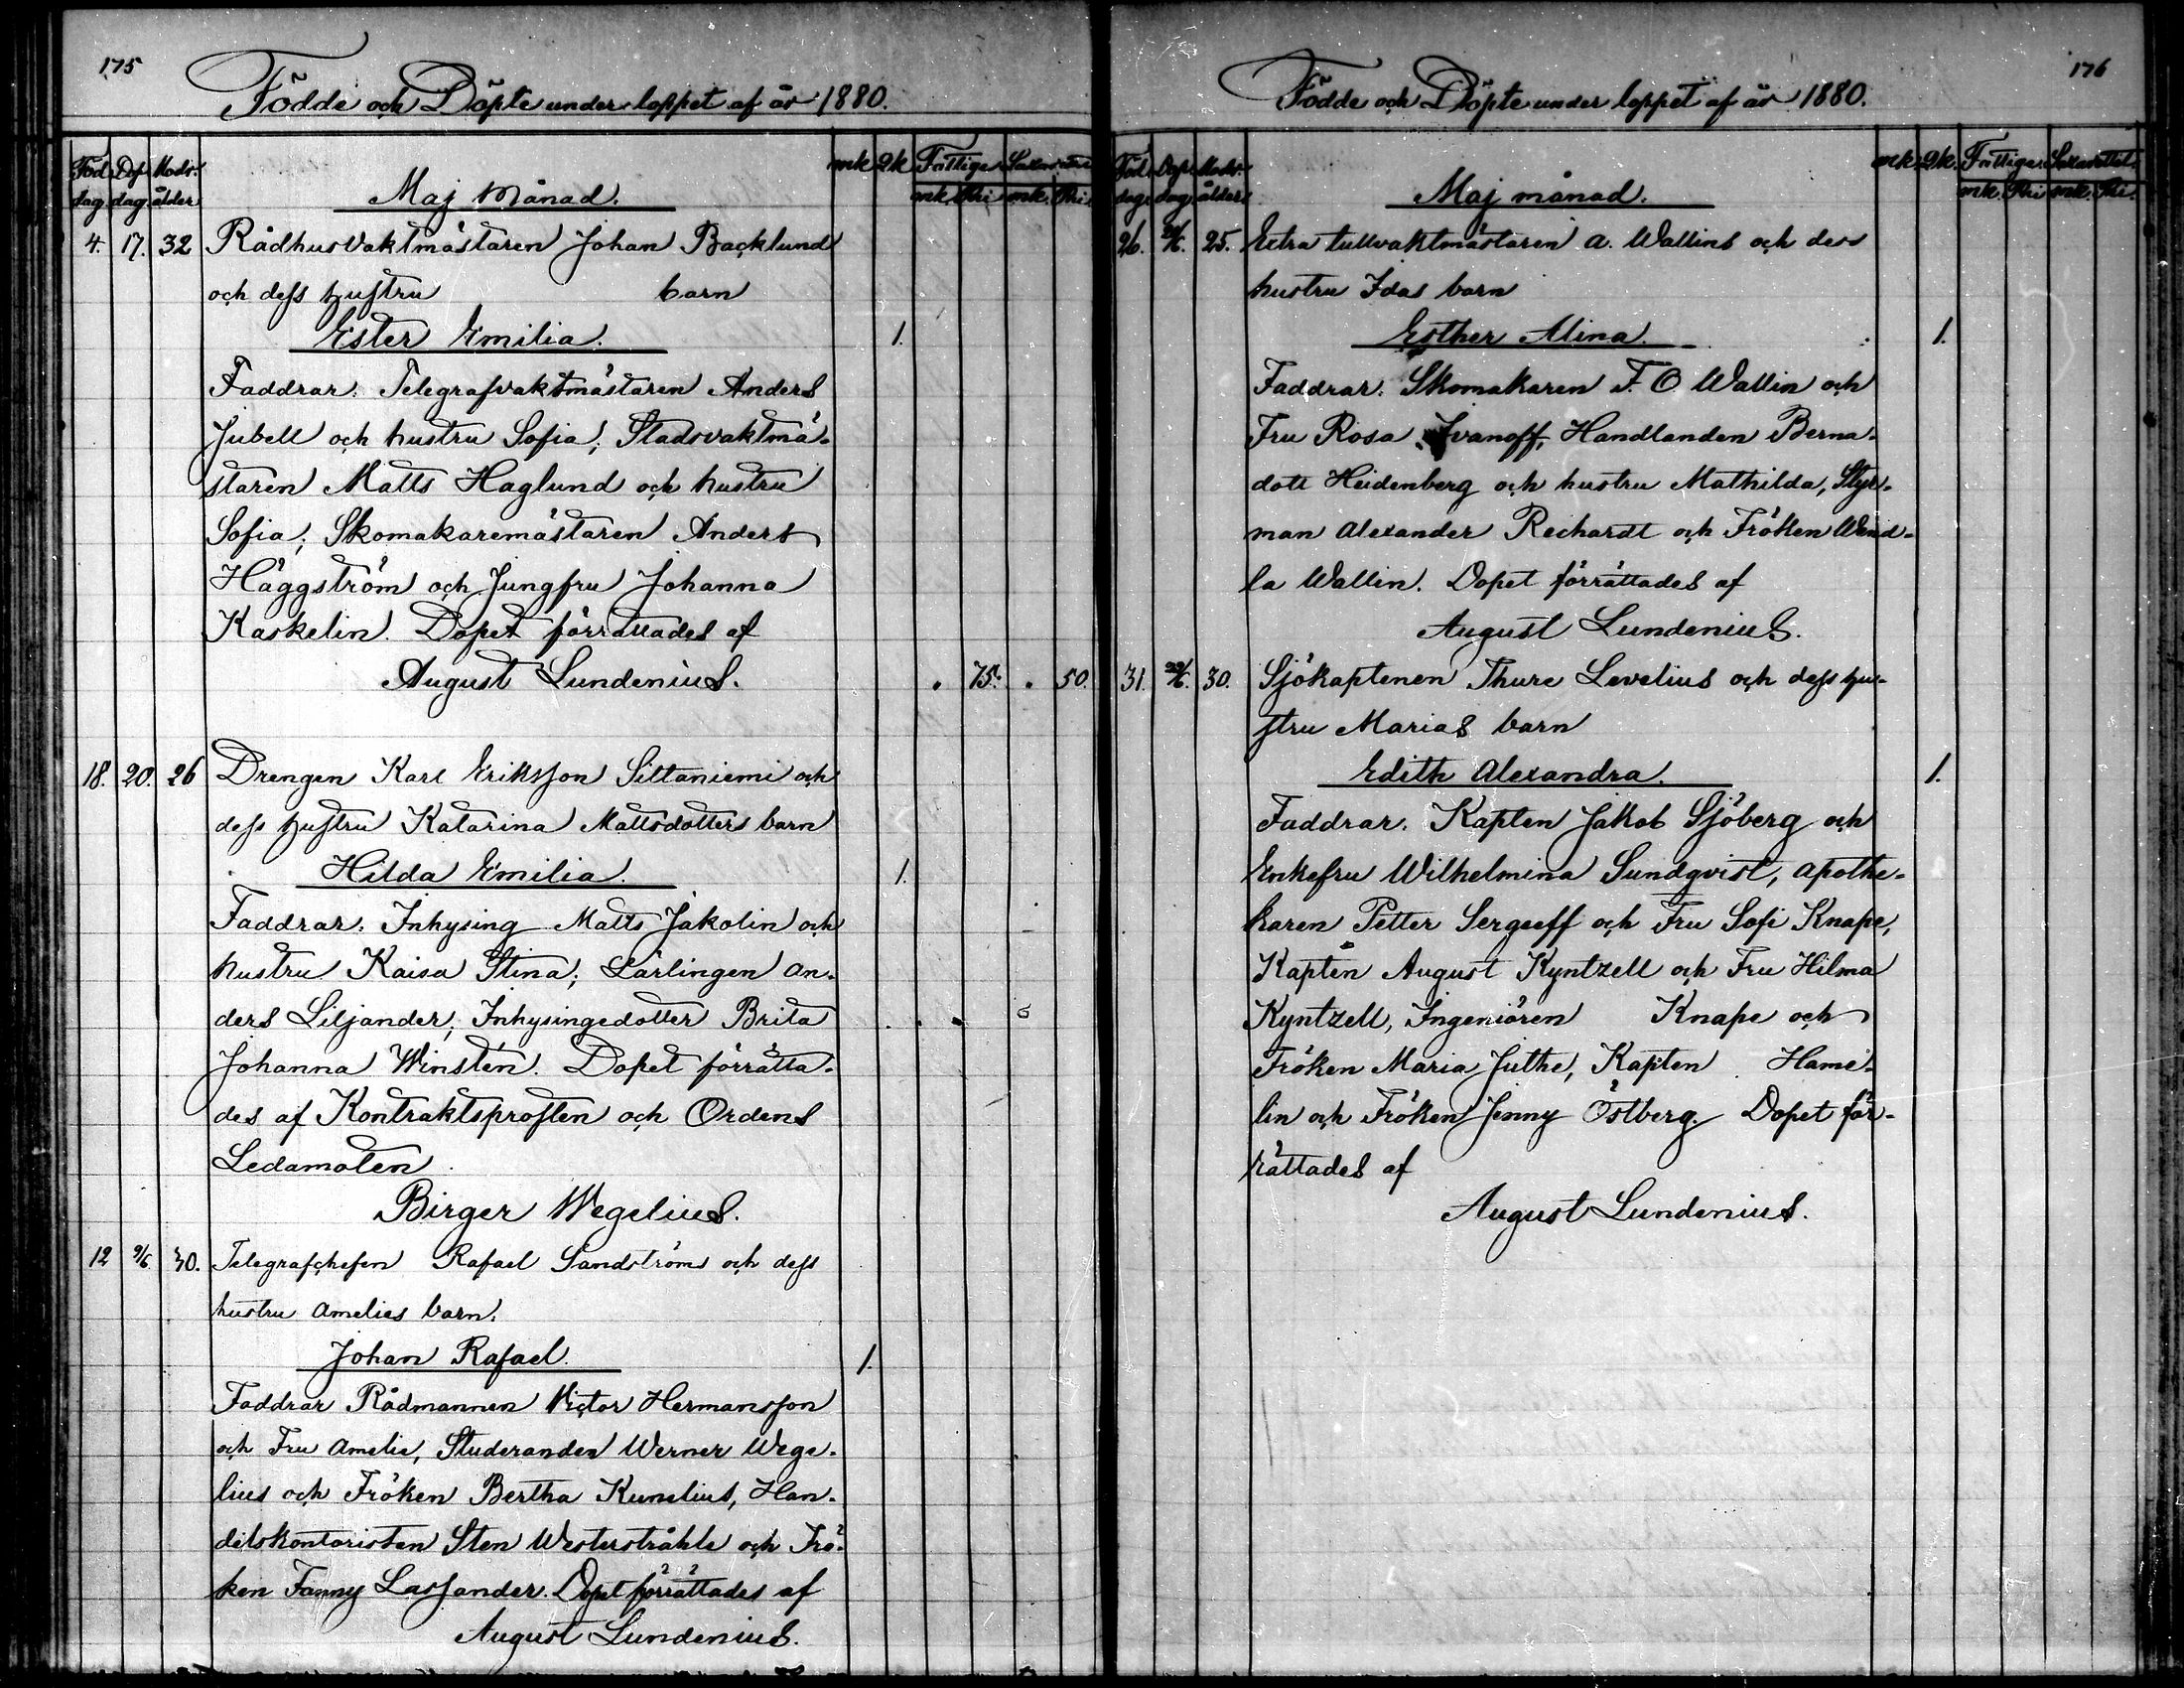 175
Födde och Döpte under loppet af år 1880.
Föd. dag. Dop dag. Modr. ålder mk qk Fattige mk. Pni mk. Pni.
Maj månad.
4. 17. 32 Rådhusvaktmästaren Johan Backlund
och dess hustru barn
Ester Emilia. 1.
Faddrar: Telegrafvaktmästaren Anders
Jubell och hustru Sofia; Stadsvaktmä-
staren Matts Haglund och hustru
Sofia; Skomakaremästaren Anders
Häggström och Jungfru Johanna
Kaskelin. Dopet förrättades af
August Lundenius. . 75. . 50.
18. 20. 26 Drengen Karl Eriksson Siltaniemi och
dess hustru Katarina Mattsdotters barn
Hilda Emilia. 1.
Faddrar: Inhysing Matts Jakolin och
hustru Kaisa Stina; Lärlingen An-
ders Liljander; Inhysingedotter Brita
Johanna Winstén. Dopet förrätta-
des af Kontraktsprosten och Ordens
Ledamoten
Birger Wegelius.
12 9/6 30. Telegrafchefen Rafael Sandströms och dess
hustru Amelies barn.
Johan Rafael. 1.
Faddrar Rådmannen Victor Hermansson
och Fru Amelie, Studeranden Werner Wege-
lius och Fröken Bertha Kunelius, Han-
delskontoristen Sten Westerstråhle och Frö-
ken Fanny Lassander. Dopet förrättades af
August Lundenius.
176
Födde och Döpte under loppet af år 1880.
Föd. dag. Dop dag. Modr. ålder mk. qk. Fattige mk. Pni mk. Pni.
Maj månad.
26. 25. Extra tullvaktmästaren A. Wallins och dess
hustru Idas barn
Esther Alina. 1.
Faddrar: Skomakaren F. O. Wallin och
Fru Rosa Ivanoff, Handlanden Berna-
dott Heidenberg och hustru Mathilda, Styr-
man Alexander Rechardt och Fröken Wend-
la Wallin. Dopet förrättades af
August Lundenius.
31. 30. Sjökaptenen Thure Levelius och dess hu-
stru Marias barn
Edith Alexandra. 1.
Faddrar. Kapten Jakob Sjöberg och
Enkefru Wilhelmina Sundqvist, Apothe-
karen Petter Sergeeff och Fru Sofi Knape,
Kapten August Kyntzell och Fru Hilma
Kyntzell, Ingeniören Knape och
Fröken Maria Juthe, Kapten Hamé-
lin och Fröken Jenny Östberg. Dopet för-
rättades af
August Lundenius.